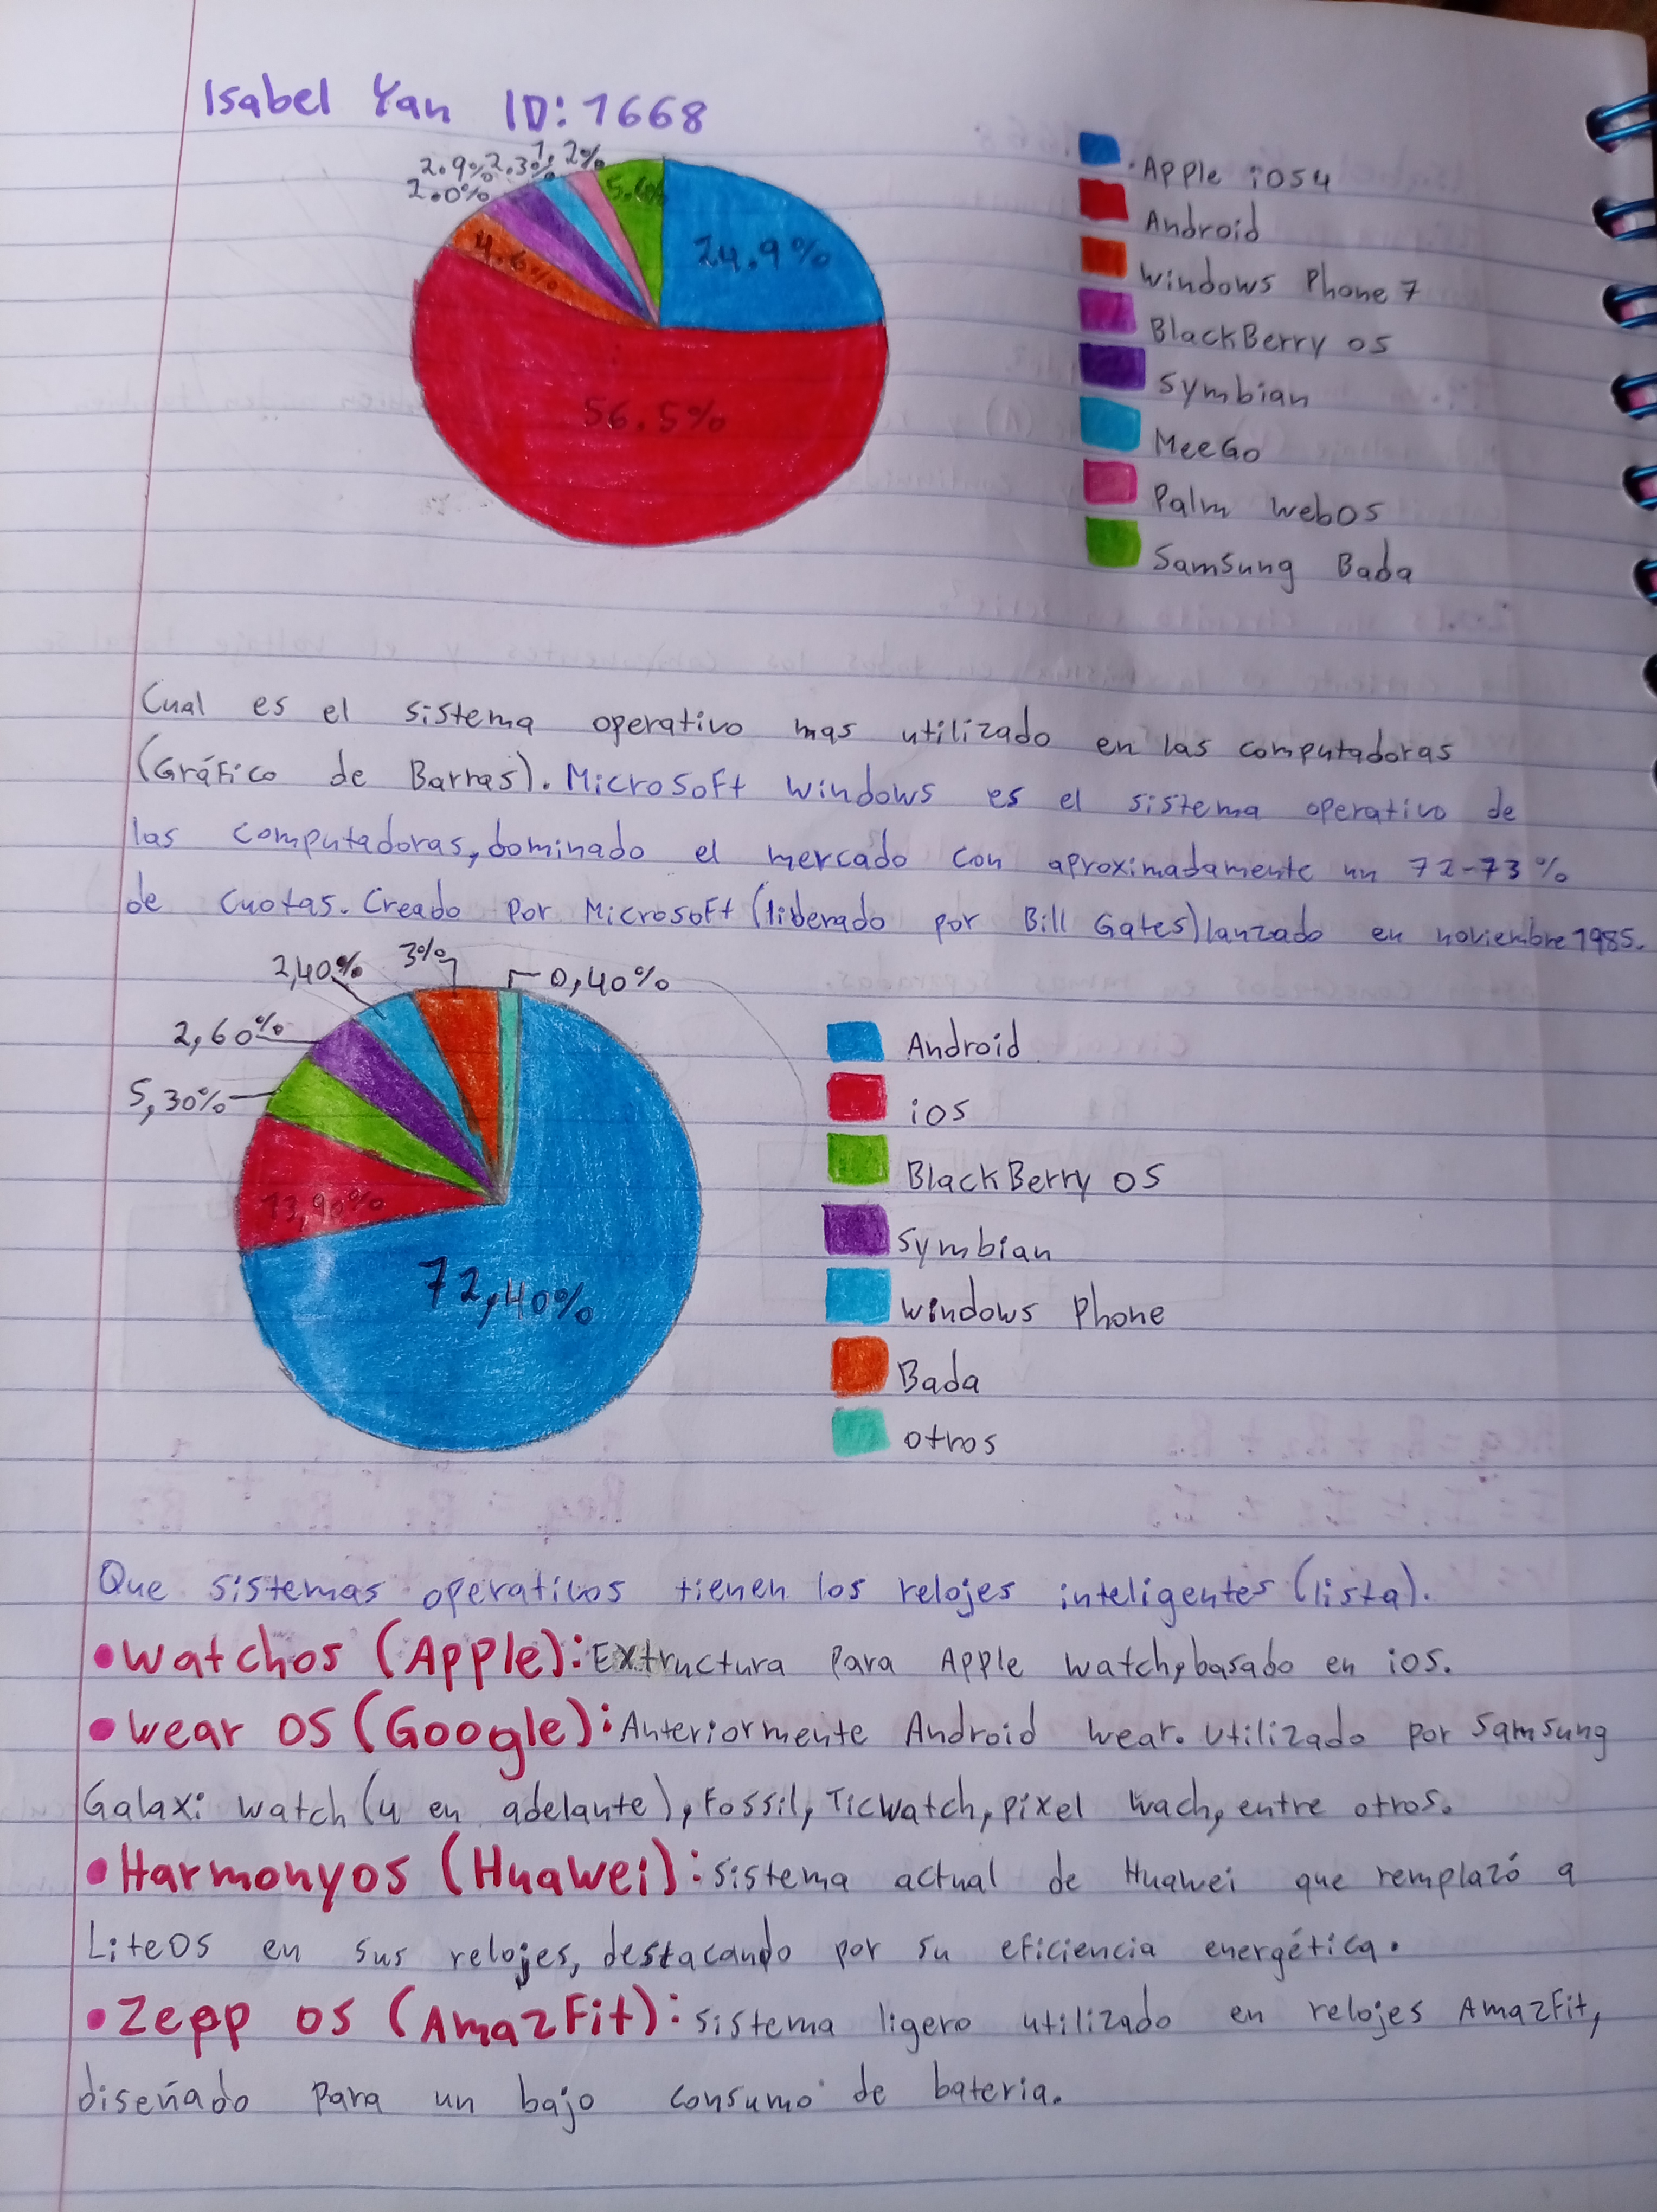 Isabel Yan ID: 1668
2.9% 2.3% 1.2%
2.0%
5.6%
24.9%
4.6%
56.5%
Apple ios4
Android
Windows Phone 7
BlackBerry os
Symbian
MeeGo
Palm WebOS
Samsung Bada
Cual es el sistema operativo mas utilizado en las computadoras
(Gráfico de Barras). Microsoft Windows es el sistema operativo de
las computadoras, dominado el mercado con aproximadamente un 72-73%
de Cuotas. Creado por Microsoft (liberado por Bill Gates) lanzado en noviembre 1985.
2,40% 3% 0,40%
2,60%
5,30%
13,90%
72,40%
Android
ios
BlackBerry OS
Symbian
Windows Phone
Bada
otros
Que sistemas operativos tienen los relojes inteligentes (lista).
•Watchos (Apple): Extructura para Apple watch, basado en ios.
•Wear OS (Google): Anteriormente Android wear. Utilizado por Samsung
Galaxi watch (4 en adelante), Fossil, Ticwatch, pixel wach, entre otros.
•Harmonyos (Huawei): sistema actual de Huawei que remplazó a
LiteOS en sus relojes, destacando por su eficiencia energética.
•Zepp os (AmazFit): sistema ligero utilizado en relojes AmazFit,
diseñado para un bajo consumo de bateria.